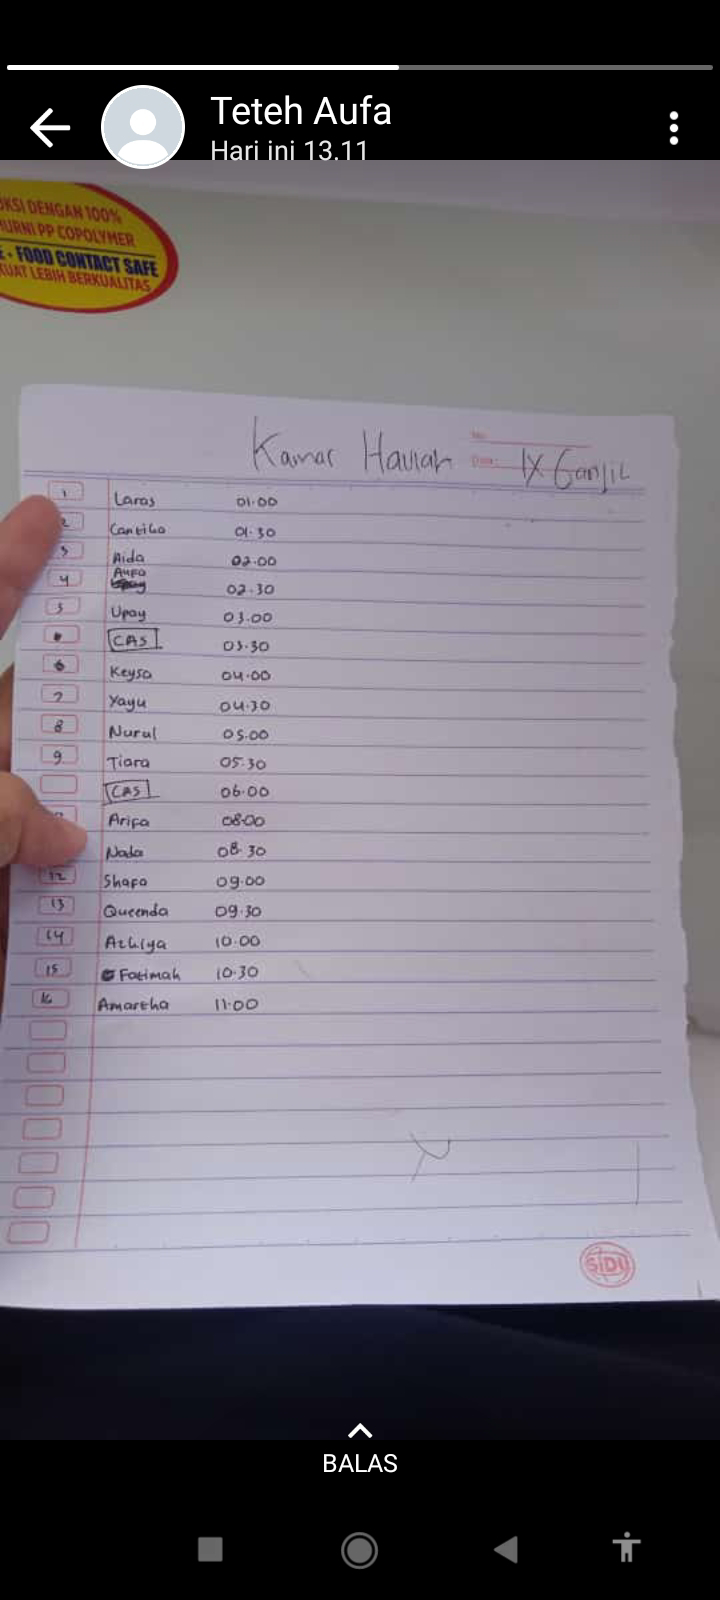 Teteh Aufa
Hari ini 13.11
KSI DENGAN 100%
MURNI PP COPOLYMER
E - FOOD CONTACT SAFE
KUAT LEBIH BERKUALITAS
Kamar Hawiah No: Date: IX Ganjil
1 Laras 01.00
2 Cantika 01.30
3 Aida 02.00
4 Aufa 02.30
5 Upay 03.00
CAS 03.30
6 Keysa 04.00
7 Yayu 04.30
8 Nurul 05.00
9 Tiara 05.30
CAS 06.00
Arifa 08.00
Nada 08.30
12 Shafa 09.00
13 Queenda 09.30
14 Athiya 10.00
15 Fatimah 10.30
16 Amartha 11.00
SIDU
BALAS